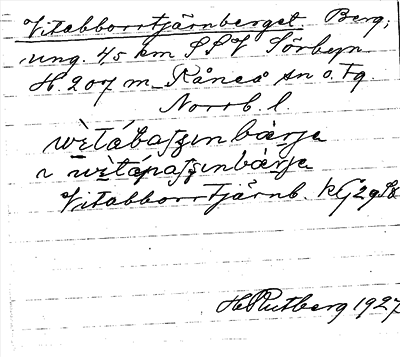 Vitabborrtjärnberget Berg;
ung. 4,5 km SSV Sörbyn
H. 207 m. Råneå sn o. tg
Norrb. l.
wìtábaʃʃenbærje
ı wìtápaʃʃenbærje
Vitabborrtjärnb. kG29
H. Rutberg 1927